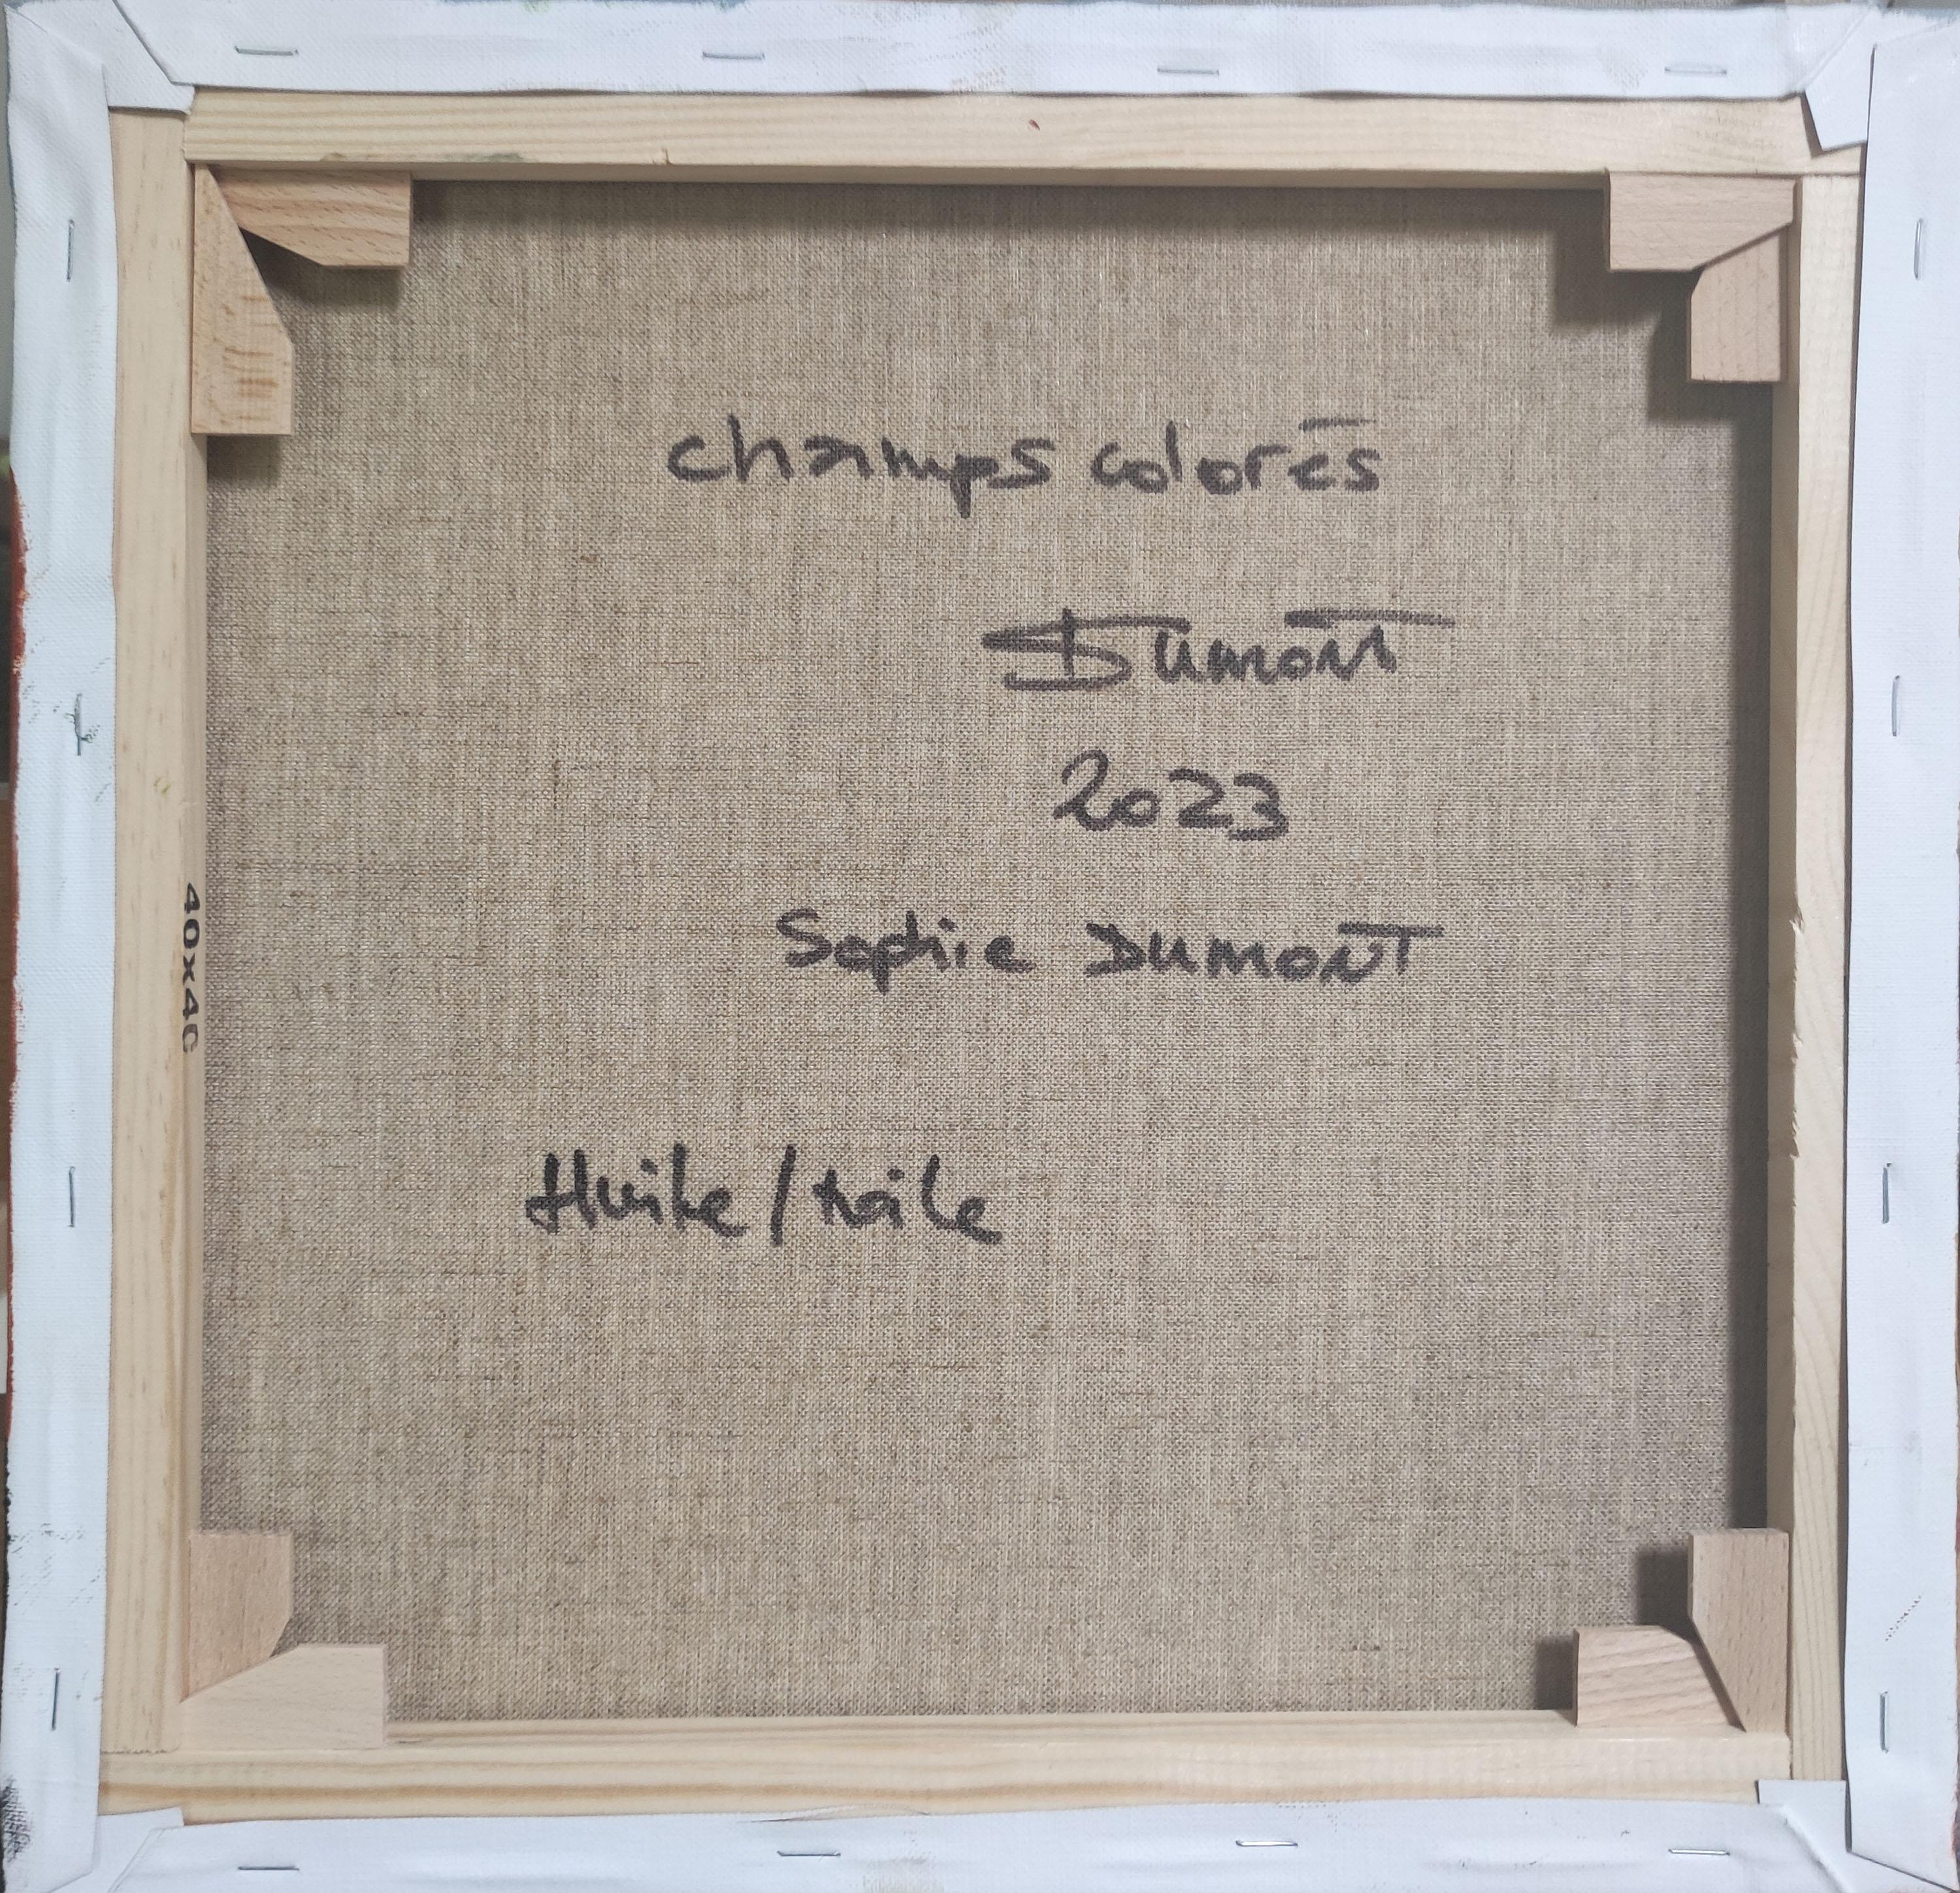 champs colorés
SDumont
2023
Sophie DUMONT
40x40
Huile/toile